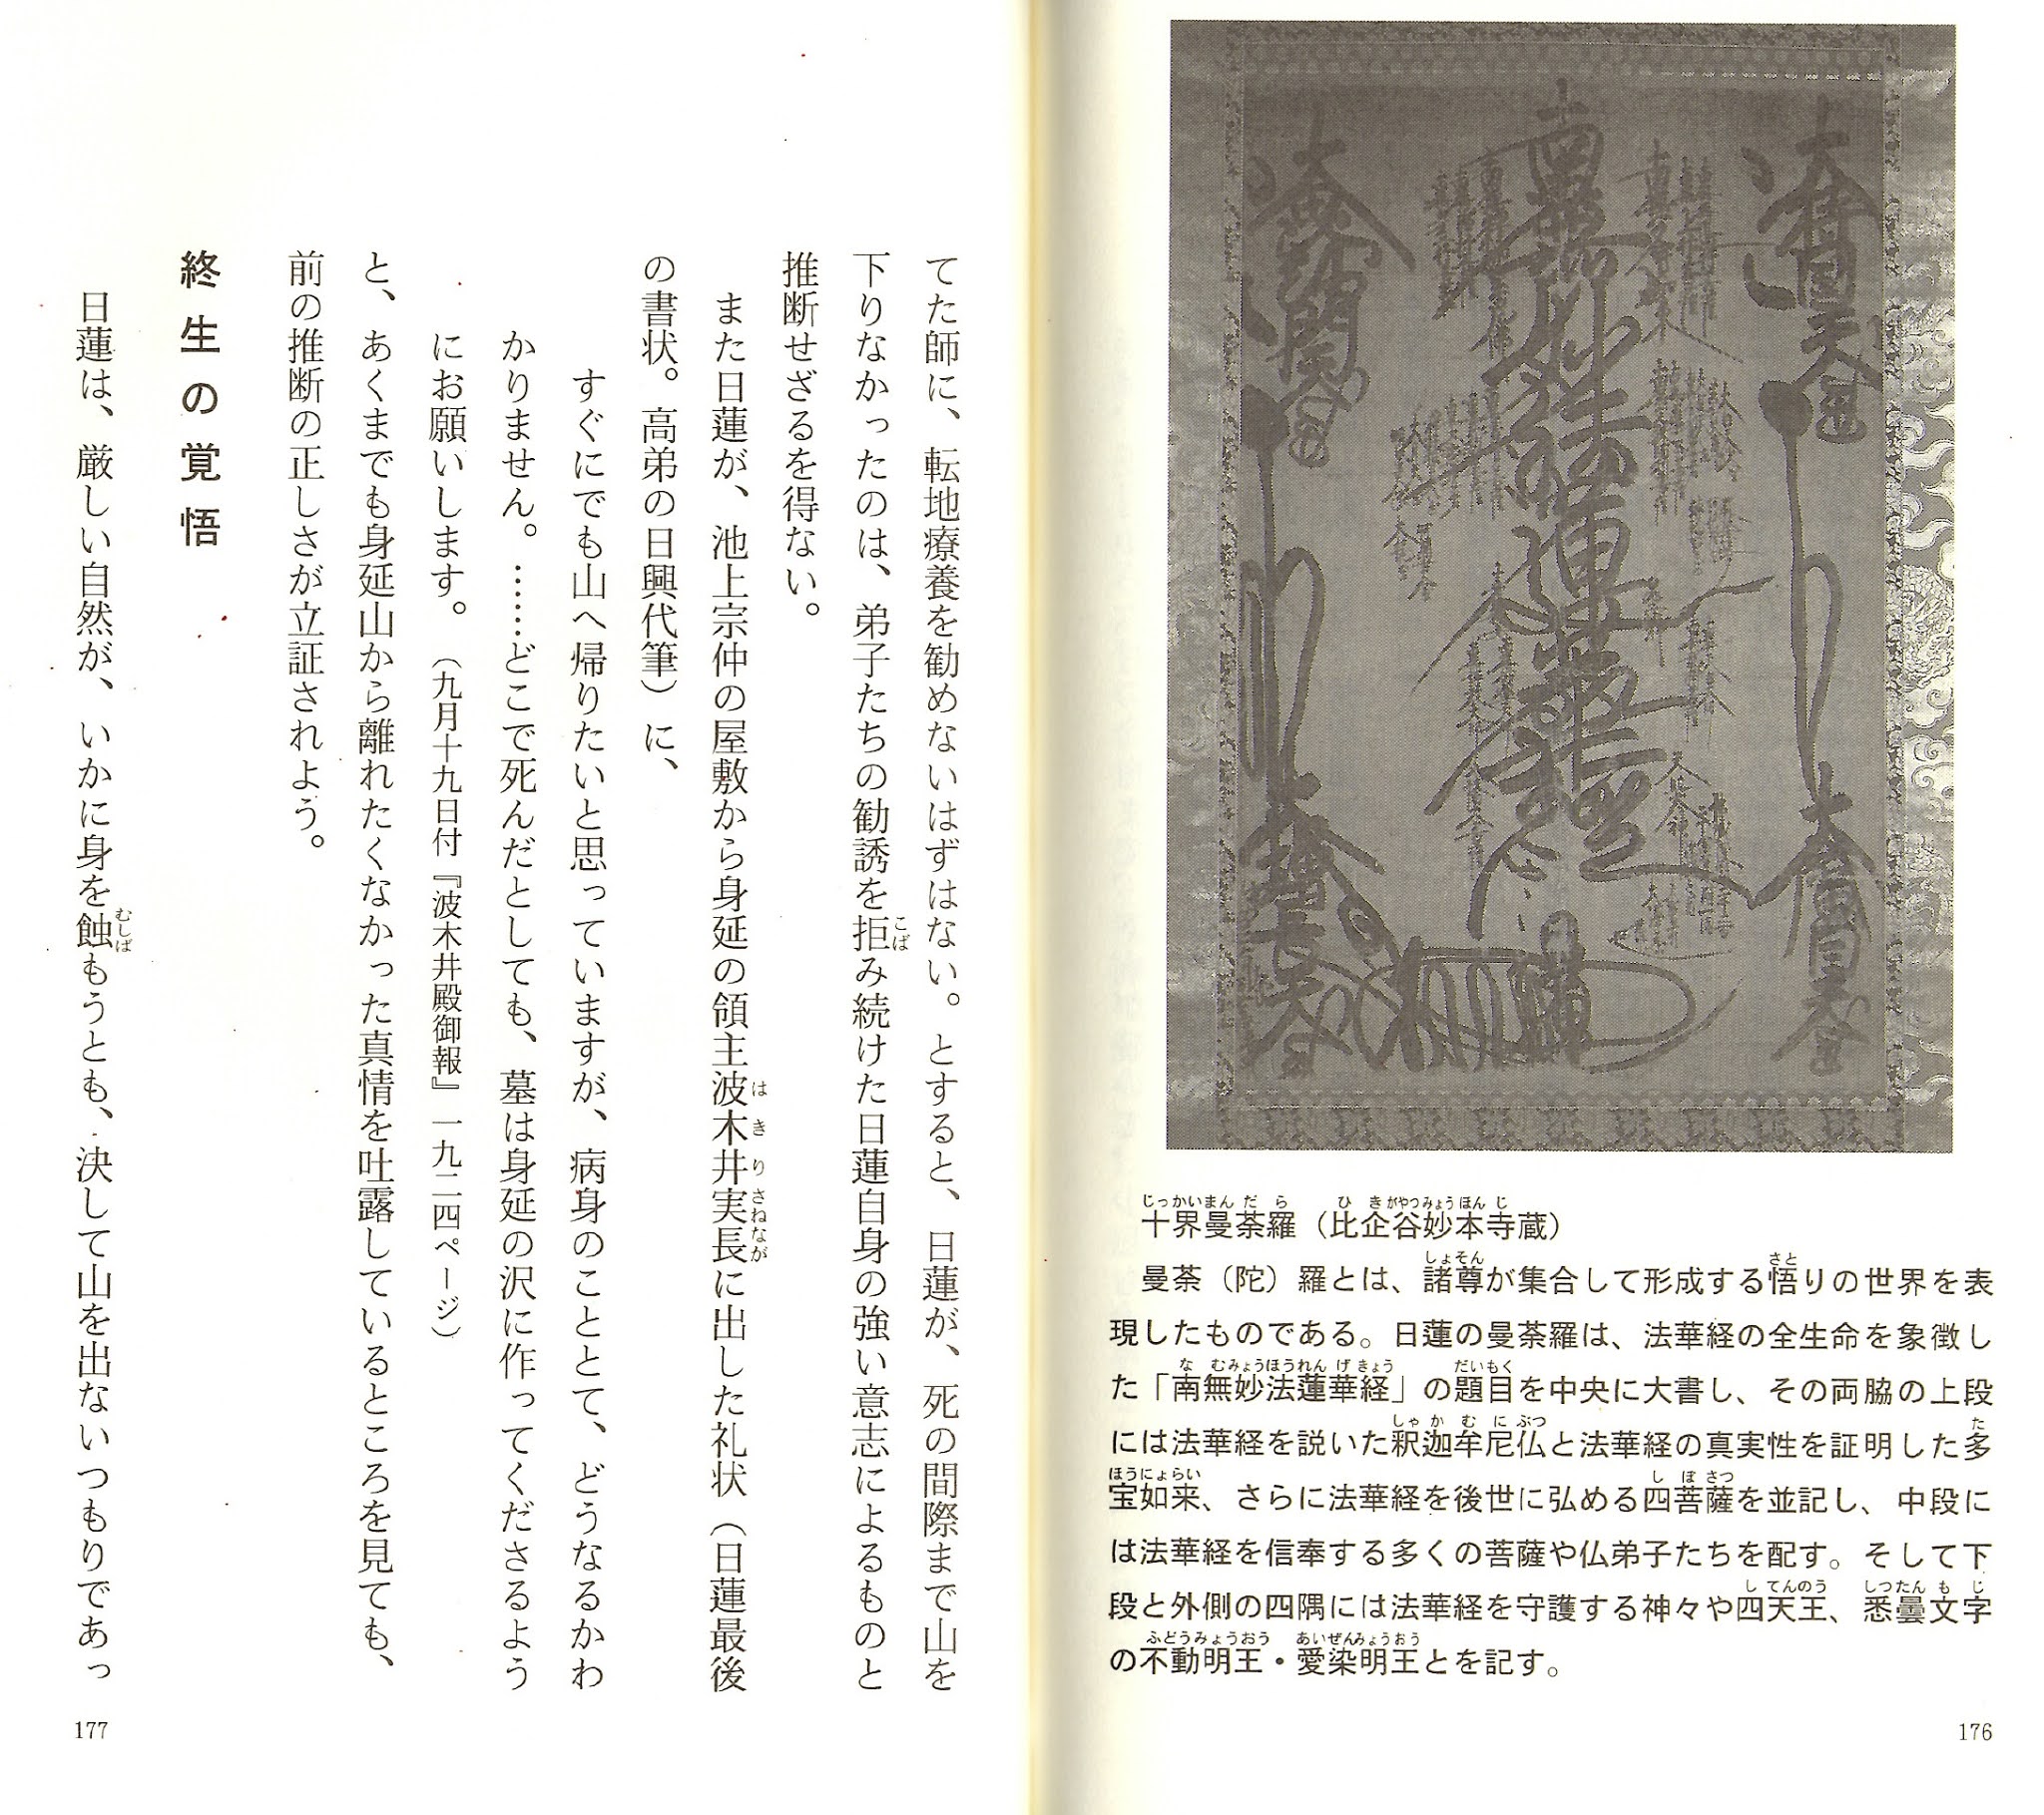 十界曼荼羅（比企谷妙本寺蔵）
曼荼（陀）羅とは、諸尊が集合して形成する悟りの世界を表
現したものである。日蓮の曼荼羅は、法華経の全生命を象徴し
た「南無妙法蓮華経」の題目を中央に大書し、その両脇の上段
には法華経を説いた釈迦牟尼仏と法華経の真実性を証明した多
宝如来、さらに法華経を後世に弘める四菩薩を並記し、中段に
は法華経を信奉する多くの菩薩や仏弟子たちを配す。そして下
段と外側の四隅には法華経を守護する神々や四天王、悉曇文字
の不動明王・愛染明王とを記す。
176
てた師に、転地療養を勧めないはずはない。とすると、日蓮が、死の間際まで山を
下りなかったのは、弟子たちの勧誘を拒み続けた日蓮自身の強い意志によるものと
推断せざるを得ない。
また日蓮が、池上宗仲の屋敷から身延の領主波木井実長に出した礼状（日蓮最後
の書状。高弟の日興代筆）に、
すぐにでも山へ帰りたいと思っていますが、病身のこととて、どうなるかわ
かりません。……どこで死んだとしても、墓は身延の沢に作ってくださるよう
にお願いします。（九月十九日付『波木井殿御報』一九二四ページ）
と、あくまでも身延山から離れたくなかった真情を吐露しているところを見ても、
前の推断の正しさが立証されよう。
終生の覚悟
日蓮は、厳しい自然が、いかに身を蝕もうとも、決して山を出ないつもりであっ
177